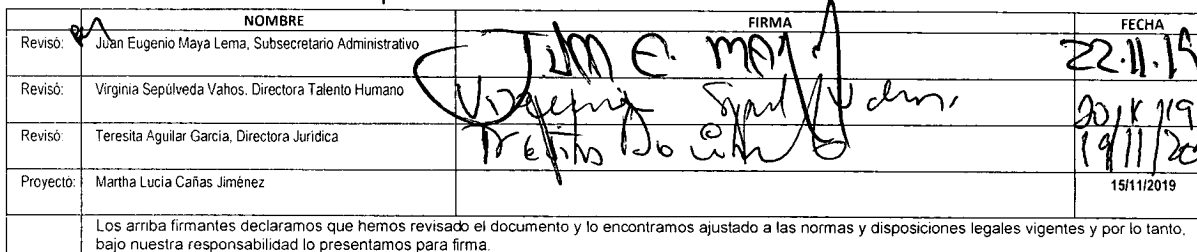 NOMBRE FIRMA FECHA
Revisó: Juan Eugenio Maya Lema, Subsecretario Administrativo 22.11.19
Revisó: Virginia Sepúlveda Vahos. Directora Talento Humano
Revisó: Teresita Aguilar García, Directora Jurídica 19/11/20
Proyectó: Martha Lucía Cañas Jiménez 15/11/2019
Los arriba firmantes declaramos que hemos revisado el documento y lo encontramos ajustado a las normas y disposiciones legales vigentes y por lo tanto,
bajo nuestra responsabilidad lo presentamos para firma.